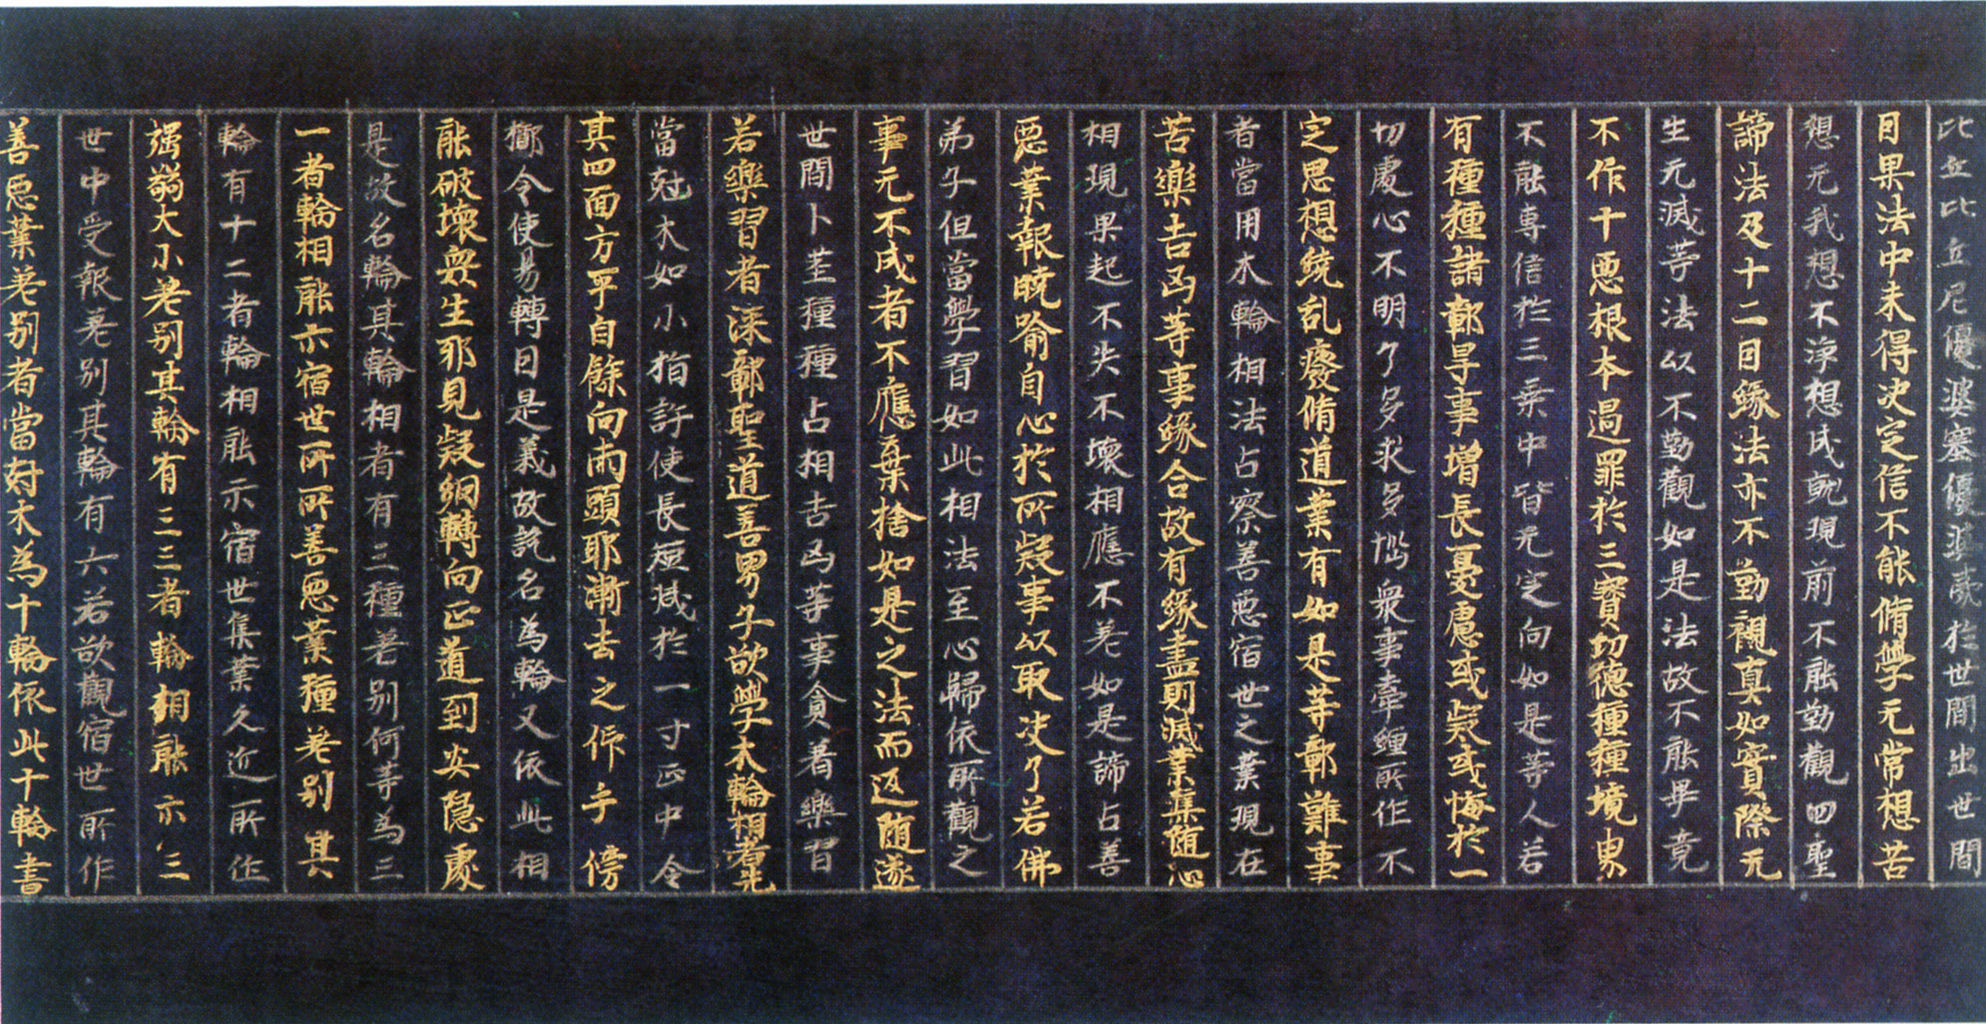 比丘比丘尼優婆塞優婆夷於世間出世間
曰果法中未得决定信不能脩學无常想苦
想无我想不淨想成就現前不能勤觀四聖
諦法及十二曰緣法亦不勤觀真如實際无
生无滅等法以不勤觀如是法故不能畢竟
不作十惡根本過罪於三寶功德種種境界
不能専信於三乗中皆无定向如是等人若
有種種諸鄣㝵事增長憂慮或疑或悔於一
切處心不明了多求多惱衆事牽纏所作不
定思想繞乱癈脩道業有如是等鄣難事
者當用木輪相法占察善惡宿世之業現在
苦樂吉凶等事緣合故有緣盡則滅業集随心
相現果起不失不壞相應不差如是諦占善
惡業報曉喻自心於所疑事以取决了若佛
弟子但當學習如此相法至心歸依所觀之
事无不成者不應棄捨如是之法而返随逐
世間卜莁種種占相吉凶等事貪着樂習
若樂習者深鄣聖道善男子欲學木輪相者先
當尅木如小指許使長短减於一寸正中令
其四面方平自餘向兩頭耶漸去之仰手傍
擲令使易轉曰是義故說名為輪又依此相
能破壞衆生邪見疑網轉向正道到安隱處
是故名輪其輪相者有三種差别何等為三
一者輪相能示宿世所所善惡業種差别其
輪有十二者輪相能示宿世集業久近所作
强弱大小差别其輪有三三者輪相能示三
世中受報差别其輪有六若欲觀宿世所作
善惡業差别者當尅木為十輪依此十輪書